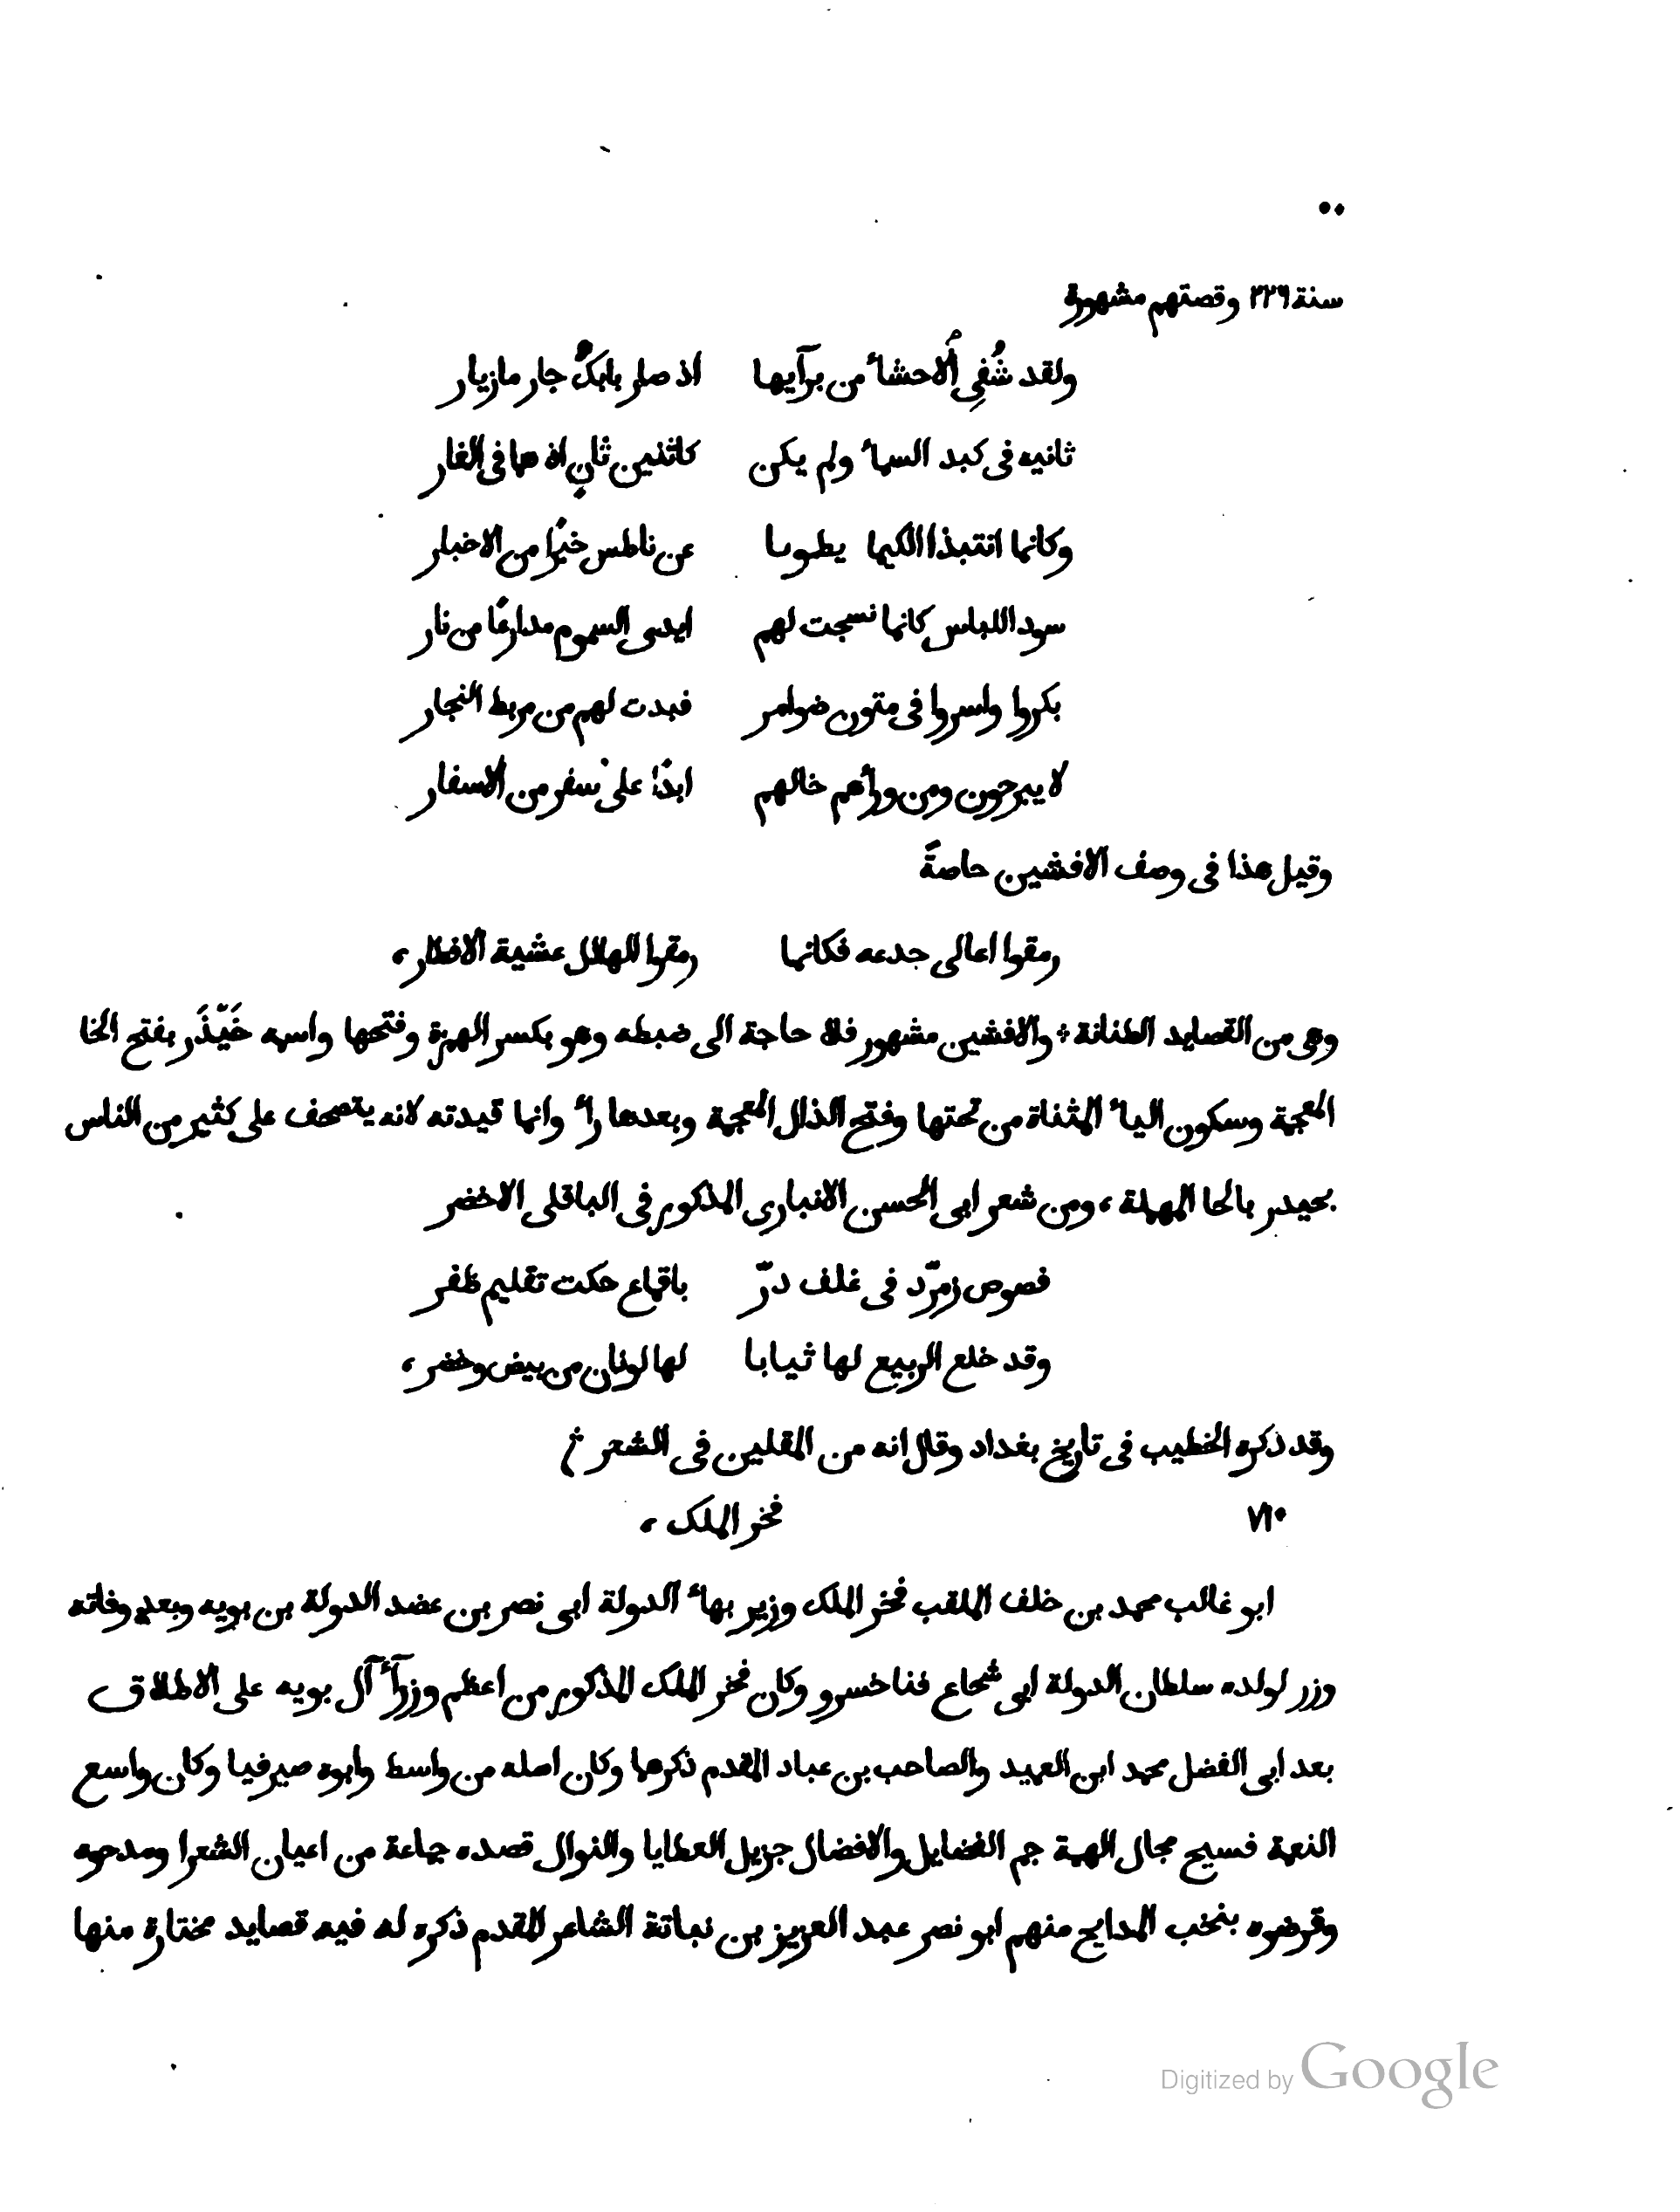 ٥٠
سنة ٢٢٦ وقصتهم مشهورة
ولقد شُفِى ٱلاحشأ من برآيها اذ صار بابكٌ جار مازيار
ثانيه فى كبد السمأ ولم يكن كاثنين ثانٍ اذ هما فى الغار
وكانما انتبذا الكيما يطويا عن ناطس خبرًا من الاخبار
سود اللباس كانما نسجت لهم ايدى السموم مدارعًا من نار
بكروا واسروا فى متون ضوامر قيدت لهم من مربط النجار
لا يبرحون ومن ورأهم خالهم ابدًا على سفر من الاسفار
وقيل هذا فى وصف الافشين خاصةً
رمقوا اعالى جدعه فكانما رمقوا الهلال عشية الافطار،
وهى من القصايد الطنانة ÷ والافشين مشهور فلا حاجة الى ضبطه وهو بكسر الهمزة وفتحها واسمه خَيْذَر بفتح الخا
المعجمة وسكون اليأ المثناة من تحتها وفتح الذال المعجمة وبعدها رأ وانما قيدته لانه يتصحف على كثير من الناس
بحيدر بالحا المهملة، ومن شعر ابى الحسن الانبارى المذكور فى الباقلى الاخضر
فصوص زمرّد فى غلف درّ باقماع حكت تقليم ظفر
وقد خلع الربيع لها ثيابا لها لونان من بيض وخضر،
وقد ذكره الخطيب فى تاريخ بغداد وقال انه من المقلين فى الشعر
٧١٠ فخر الملك،
ابو غالب محمد بن خلف الملقب فخر الملك وزير بهأ الدولة ابى نصر بن عضد الدولة بن بويه وبعد وفاته
وزر لولده سلطان الدولة ابى شجاع فناخسرو وكان فخر الملك المذكور من اعظم وزرآٔ آل بويه على الاطلاق
بعد ابى الفضل محمد ابن العميد والصاحب بن عباد المقدم ذكرهما وكان اصله من واسط وابوه صيرفيا وكان واسع
النعمة فسيح مجال الهمة جم الفضايل والافضال جزيل العطايا والنوال قصده جماعة من اعيان الشعرا ومدحوه
وقرضوه بنخب المدايح منهم ابو نصر عبد العزيز بن نباتة الشاعر المقدم ذكره له فيه قصايد مختارة منها
Digitized by Google